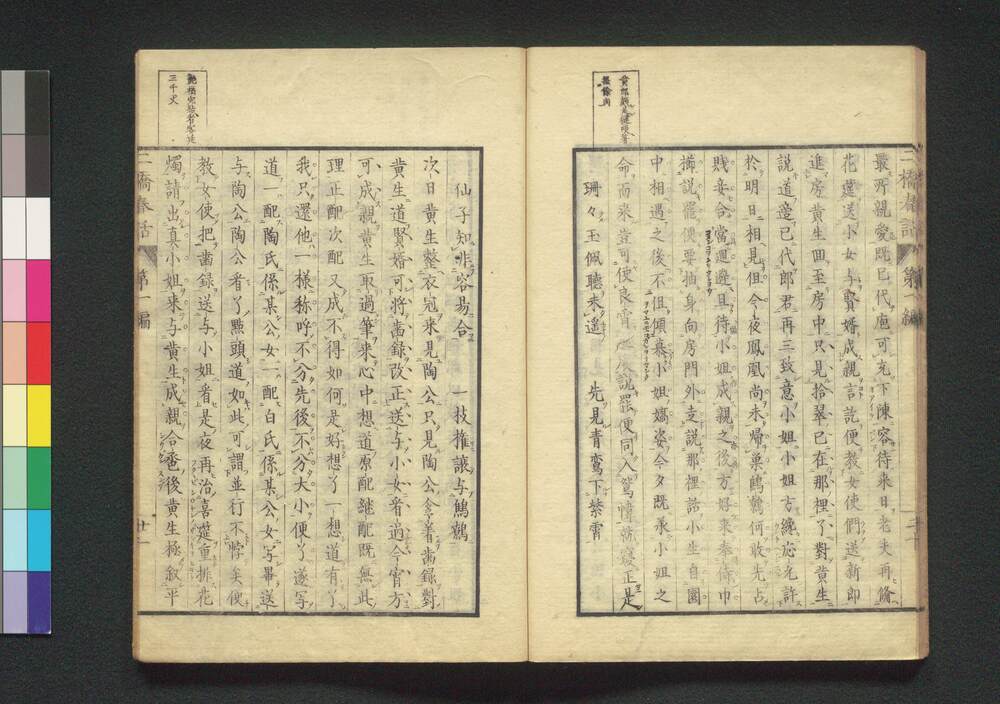 最所親愛既已代庖可充下陳容待来日老夫再備
花筵送小女与賢婿成親言訖便教女使們送新郎
進房黄生回至房中只見拾翠已在那裡了對黄生
説道妾已代郎君再三致意小姐小姐方纔応允許
於明日相見但今夜鳳凰尚未帰巣鷦鷯何敢先占
賤妾合當廻避且待小姐成親之後方好来奉侍巾
櫛説罷便要抽身向房門外走説那裡話小生自園
中相遇之後不但傾慕小姐嬌姿今夕既承小姐之
命而来豈可使良宵説罷便同入鴛幃就寝正是
珊々玉佩聴未遥 先見青鸞下紫霄
二橋春話 第一編
仙子知非容易合 一枝権譲与鷦鷯
次日黄生整衣冠来見陶公只見陶公拿着歯録對
黄生道賢婿可将歯録改正送与小女看過今宵方
可成親黄生取過筆来心中想道原配継配既無此
理正配次配又成不得如何是好想了一想道有了
我只還他一様称呼不分先後不分大小便了遂写
道一配陶氏係某公女一配白氏係某公女写畢送
与陶公陶公看了點頭道如此可謂並行不悖矣便
教女使把歯録送与小姐看是夜再治喜筵重排花
燭請出真小姐来与黄生成親合巹後黄生極叙平
二橋春話 第一編 廿一
三千丈